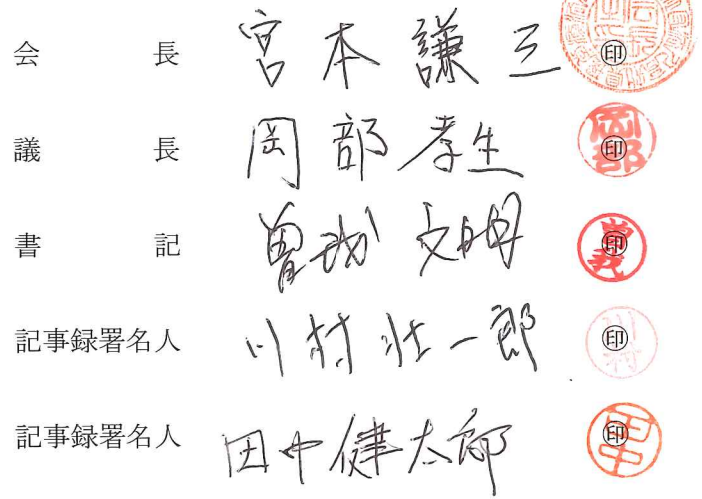 会長 宮本謙三 ㊞
議長 岡部孝生 ㊞
書記 曽我文明 ㊞
記事録署名人 川村壮一郎 ㊞
記事録署名人 田中健太郎 ㊞